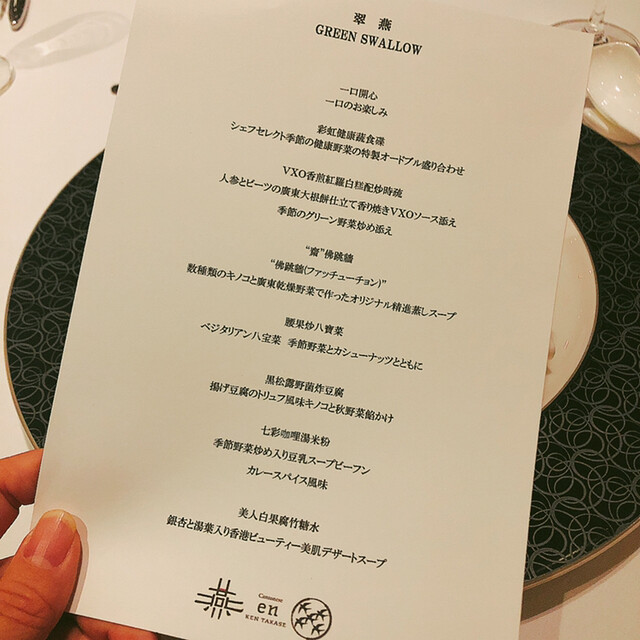 翠燕
GREEN SWALLOW
一口開心
一口のお楽しみ
彩虹健康蔬食碟
シェフセレクト季節の健康野菜の特製オードブル盛り合わせ
VXO香煎紅羅白糕配炒時蔬
人参とビーツの廣東大根餅仕立て香り焼きVXOソース添え
季節のグリーン野菜炒め添え
“齋”佛跳牆
“佛跳牆(ファッチューチョン)”
数種類のキノコと廣東乾燥野菜で作ったオリジナル精進蒸しスープ
腰果炒八寶菜
ベジタリアン八宝菜 季節野菜とカシューナッツとともに
黒松露野菌炸豆腐
揚げ豆腐のトリュフ風味キノコと秋野菜餡かけ
七彩咖哩湯米粉
季節野菜炒め入り豆乳スープビーフン
カレースパイス風味
美人白果腐竹糖水
銀杏と湯葉入り香港ビューティー美肌デザートスープ
燕
Cantonese
en
KEN TAKASE